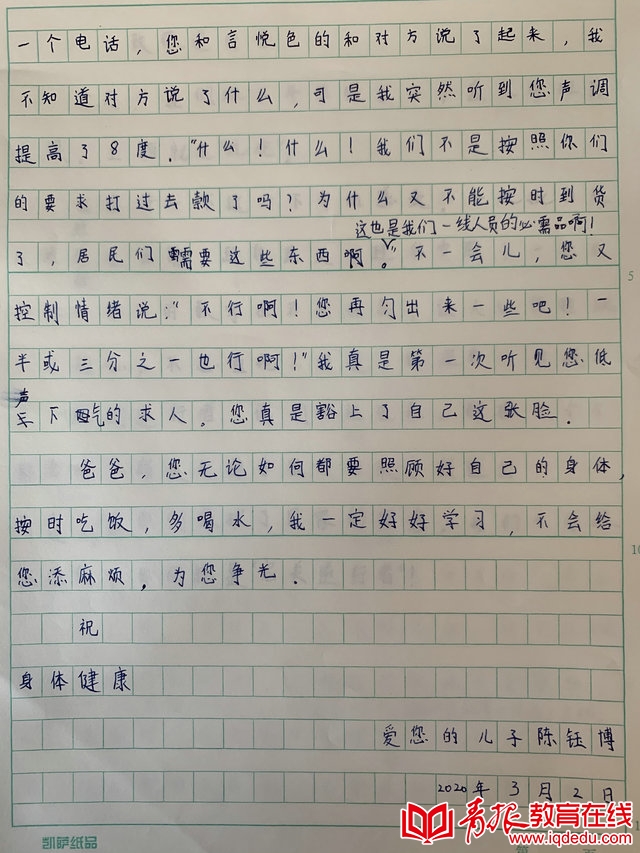 一个电话，您和言悦色的和对方说了起来，我
不知道对方说了什么，可是我突然听到您声调
提高了8度．“什么！什么！我们不是按照你们
的要求打过去款了吗？为什么又不能按时到货
这也是我们一线人员的必需品啊！
了，居民们需要这些东西啊。”不一会儿，您又
控制情绪说：“不行啊！您再匀出来一些吧！一
半或三分之一也行啊！”我真是第一次听见您低
声
下气的求人．您真是豁上了自己这张脸．
爸爸，您无论如何都要照顾好自己的身体，
按时吃饭，多喝水，我一定好好学习，不会给
您添麻烦，为您争光．
祝
身体健康
爱您的儿子陈钰博
2020年3月2日
凯萨纸品
5
10
青报教育在线
www.iqdedu.com